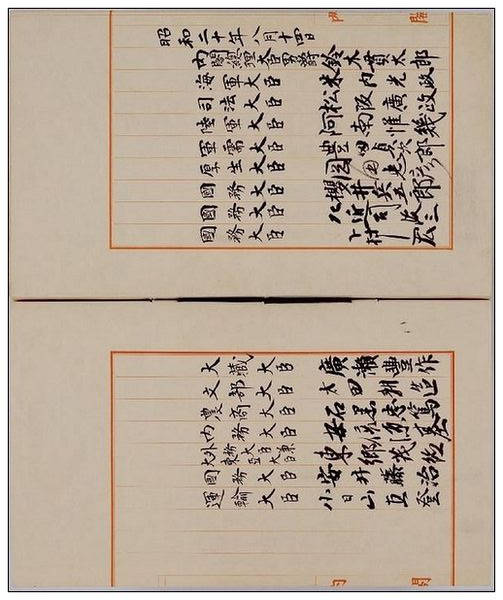 昭和二十年八月十四日
内閣總理大臣男爵鈴木貫太郎
海軍大臣 米内光政
司法大臣 松阪廣政
陸軍大臣 阿南惟幾
軍需大臣 豊田貞次郎
厚生大臣 岡田忠彦
國務大臣 櫻井兵五郎
國務大臣 左近司政三
國務大臣 下村宏
大藏大臣 廣瀬豊作
文部大臣 太田耕造
農商大臣 石黒忠篤
内務大臣 安倍源基
外務大臣兼大東亞大臣 東郷茂徳
國務大臣 安井藤治
運輸大臣 小日山直登